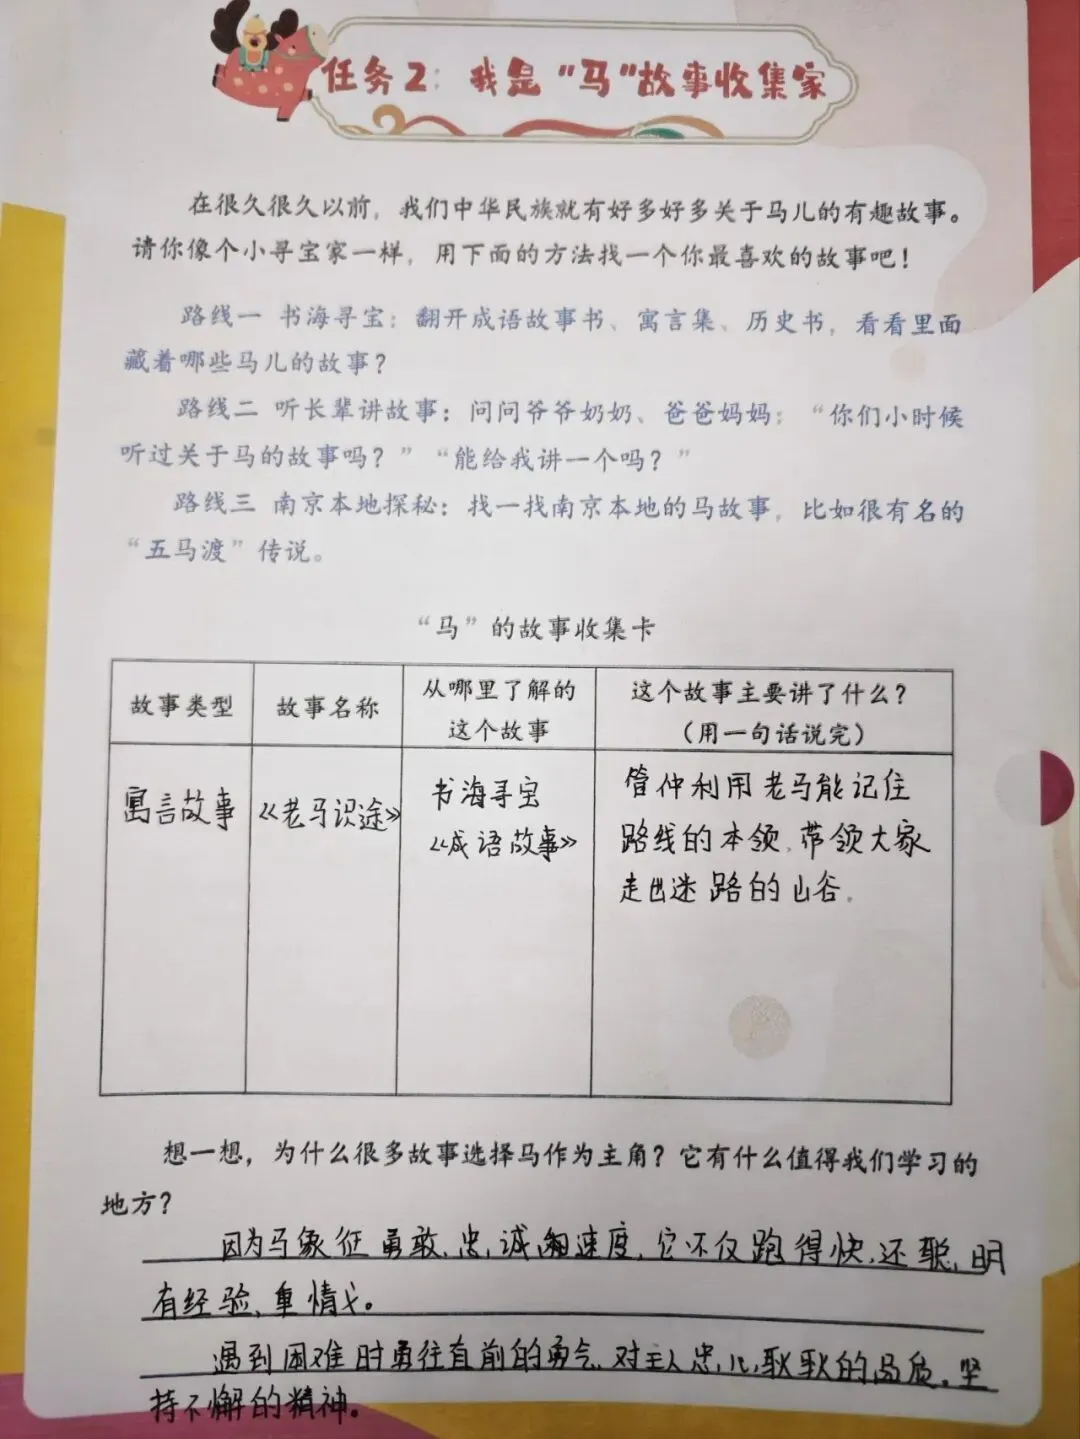 任务2：我是“马”故事收集家
在很久很久以前，我们中华民族就有好多好多关于马儿的有趣故事。
请你像个小寻宝家一样，用下面的方法找一个你最喜欢的故事吧！
路线一 书海寻宝：翻开成语故事书、寓言集、历史书，看看里面
藏着哪些马儿的故事？
路线二 听长辈讲故事：问问爷爷奶奶、爸爸妈妈：“你们小时候
听过关于马的故事吗？”“能给我讲一个吗？”
路线三 南京本地探秘：找一找南京本地的马故事，比如很有名的
“五马渡”传说。
“马”的故事收集卡
故事类型
故事名称
从哪里了解的
这个故事
这个故事主要讲了什么？
（用一句话说完）
寓言故事
《老马识途》
书海寻宝
《成语故事》
管仲利用老马能记住
路线的本领，带领大家
走出迷路的山谷。
想一想，为什么很多故事选择马作为主角？它有什么值得我们学习的
地方？
因为马象征勇敢、忠诚和速度，它不仅跑得快，还聪明
有经验、重情义。
遇到困难时勇往直前的勇气，对主人忠心耿耿的品质，坚
持不懈的精神。